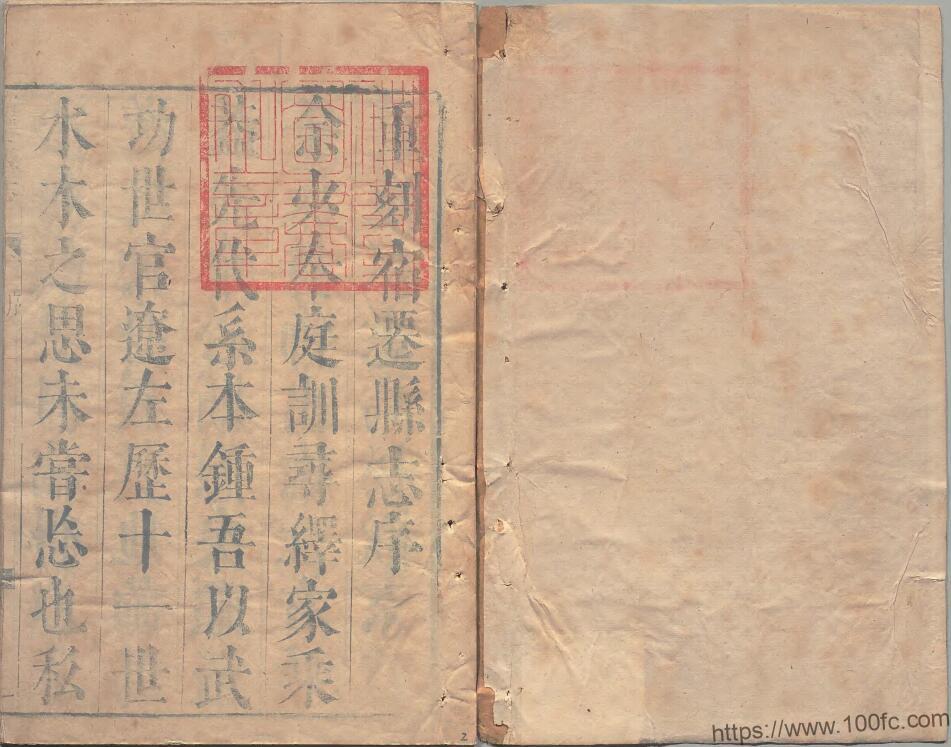 重刻宿遷縣志序
余夾奉庭訓尋繹家乘
先代系本鍾吾以武
功世官遼左歷十一世
水木之思未嘗忘也私
2
https://www.100fc.com